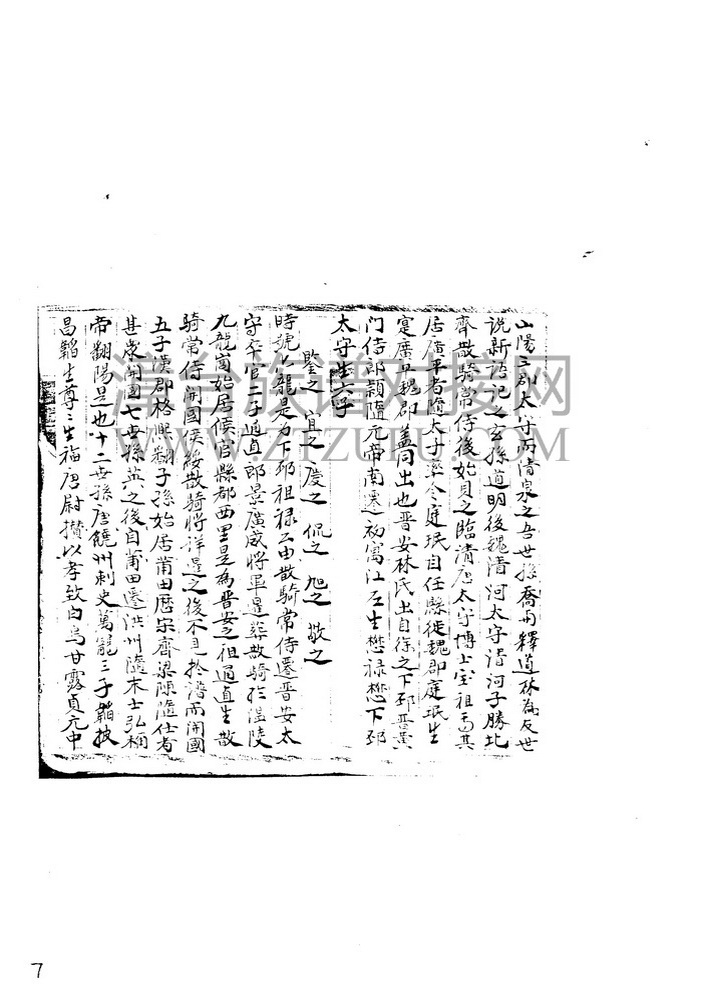 山陽三郡太守丙清泉之吾世孫喬与釋道林為友世
说新语记之玄孫道明後魏清河太守清河子勝北
齊散騎常侍後始貝之臨清唐太守博士宝祖其
居廣平者隨太子率令庭珉自任縣徙魏郡庭珉生
寔廣平魏郡盖同出也晋安林氏出自徐之下邳晋黄
门侍郎穎隨元帝南遷初寓江左生懋禄懋下邳
太守生六子
鑒之 宜之 慶之 侃之 旭之 敬之
時號六龍是为下邳祖禄公由散騎常侍遷晋安太
守卒官二子通直郎景廣威將軍暹葬散騎於温陵
九龍崗始居候官縣都西里是為晋安之祖通直生散
騎常侍開國侯綏散騎將詳暹之後不見於谱而開國
五子漢郡格熙翻子孫始居莆田歷宋齊梁陳隨仕者
甚衆開國七世孫英之後自莆田遷洪州隨末士弘稱
帝翻陽是也十二世孫唐饒州刺史萬寵三子韜披
昌韜生尊尊生福唐尉攢以孝致白烏甘露貞元中
漳台族谱对接网
WWW.ZTZUPU.COM
7